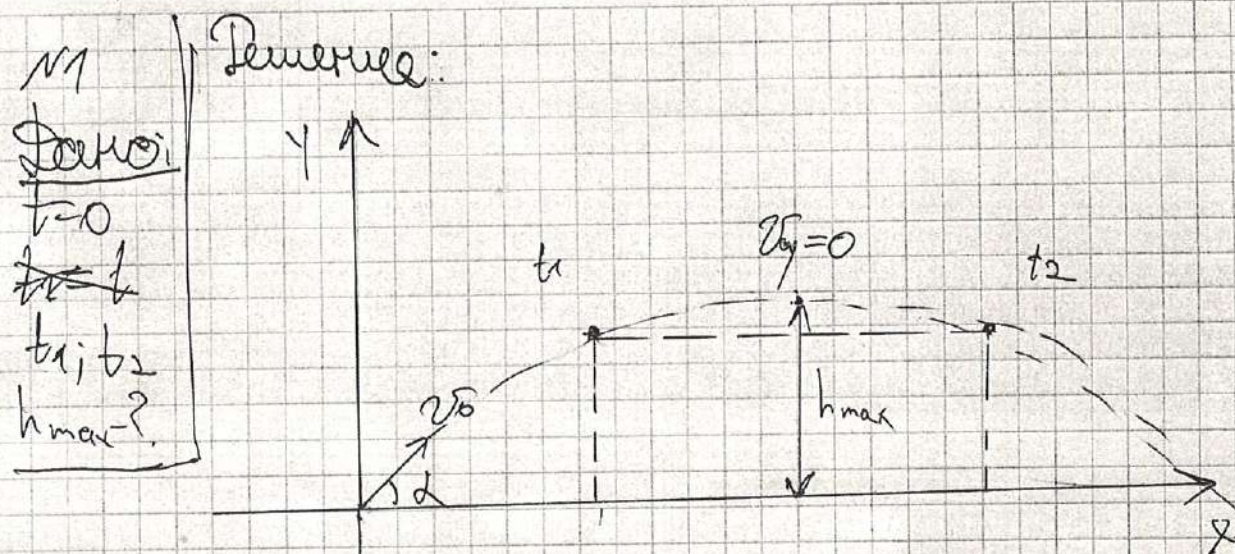 №1
Дано:
t=0
t₁; t₂
h max-?
Решение:
Y
t₁
v₀y=0
t₂
v₀
α
h max
X